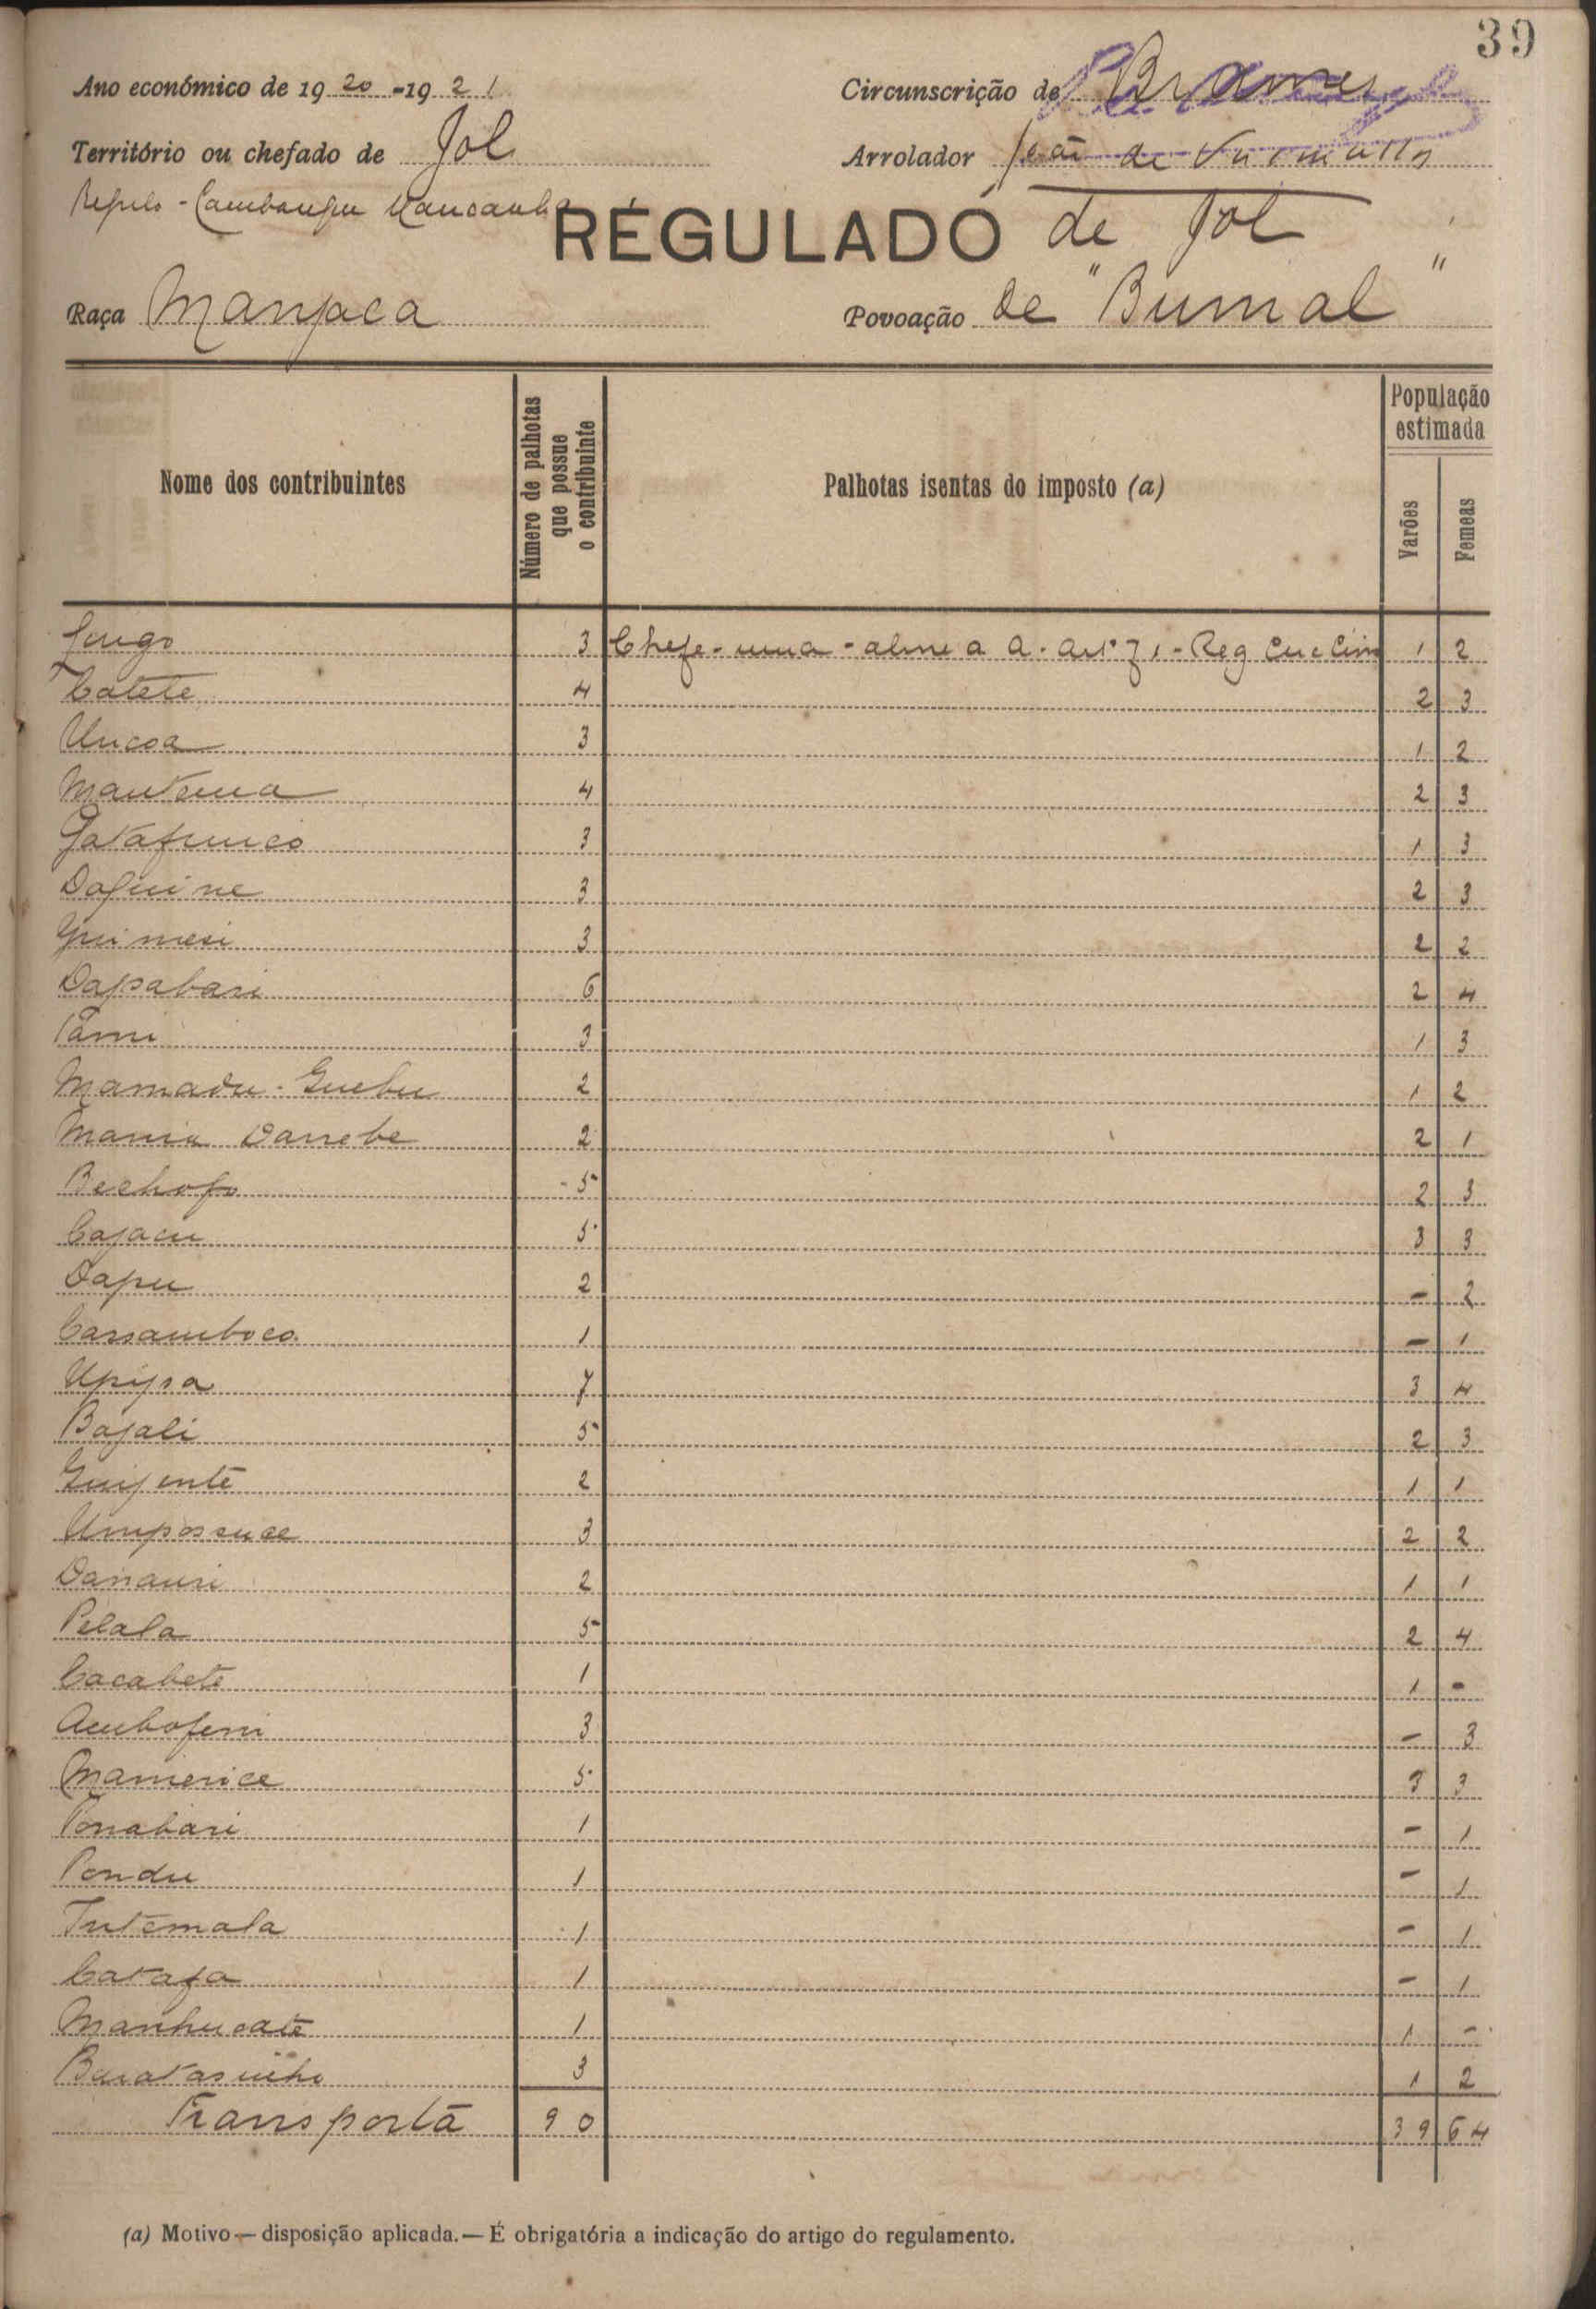 39
Ano económico de 1920-1921
Circunscrição de Brames
Território ou chefado de Jol
Arrolador João de
Regulo - Cambanque Mancanha
REGULADO de Jol
Raça Manjaca
Povoação de "Bumal"
Nome dos contribuintes
Número de palhotas que possue o contribuinte
Palhotas isentas do imposto (a)
População estimada
Varões
Femeas
Jongo 3 Chefe - uma - alinea a. artº 71 - Reg 1 2
Catete 4 2 3
Uncoa 3 1 2
Mantema 4 2 3
3 1 3
Daquine 3 2 3
3 2 2
Dapabari 6 2 4
Pami 3 1 3
Mamadu - Guebu 2 1 2
Maria Danebe 2 2 1
5 2 3
Cajacu 5 3 3
Dapu 2 - 2
Cassamboco 1 - 1
Upissa 7 3 4
Bajali 5 2 3
Guijente 2 1 1
Umpossuce 3 2 2
2 1 1
Pelala 5 2 4
Cacabete 1 1 -
3 - 3
Mamerice 5 3 3
Ponabari 1 - 1
Pondu 1 - 1
Tutemala 1 - 1
1 - 1
1 1 -
3 1 2
Transporta 90 39 64
(a) Motivo — disposição aplicada. — É obrigatória a indicação do artigo do regulamento.